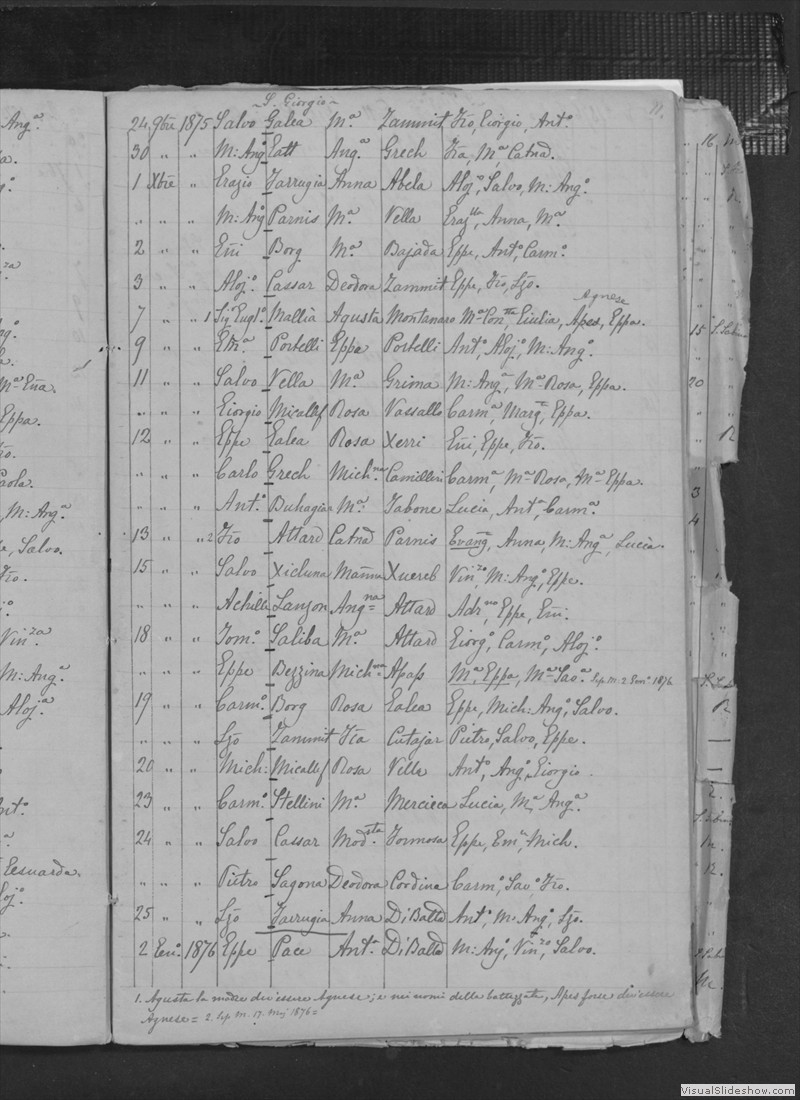 Ang.ª
Mª Eña
Eppa.
Paola.
M: Ang.ª
Salvo.
Vin.za
M: Ang.ª
Aloj.ª
Eesuarda.
S. Giorgio
11.
24 9bre 1875 Salvo Galea Mª Zammit Fro, Eiorgio, Ant.º
30 " " M: Ang.º Eatt Ang.ª Grech Fra, Mª Catnª.
1 Xbre " Erazio Farrugia Anna Abela Aloj.º, Salvo, M: Ang.º
" " M: Ang.º Parnis Mª Vella Anna, Mª.
2 " " Eñi Borg Mª Bajada Eppe, Ant.º, Carm.º
3 " " Aloj.º Cassar Deodora Zammit Eppe, Fro, Lzo.
Agnese
7 " " 1 Sig Mallia Agusta Montanaro Mª Eiulia, Apes, Eppa.
9 " " Portelli Eppa Portelli Ant.º, Aloj.º, M: Ang.º
11 " " Salvo Vella Mª Grima M: Ang.ª, Mª Rosa, Eppa.
" " " Eiorgio Micallef Rosa Vassallo Carm.ª, Marg.ª, Eppa.
12 " " Eppe Ealea Rosa Xerri Eñi, Eppe, Fro.
" " " Carlo Grech Mich.na Camilleri Carm.ª, Mª Rosa, Mª Eppa.
" " " Ant.º Buhagiar Mª Tabone Lucia, Ant.ª, Carm.ª
13 " " 2 Fro Attard Catnª Parnis Evang., Anna, M: Ang.ª, Lucia.
15 " " Salvo Xicluna Mañna Xuereb Vin.zo, M: Ang.º, Eppe.
" " " Achille Lanzon Ang.na Attard Adr.no, Eppe, Eñi.
18 " " Tom.º Saliba Mª Attard Eiorg.º, Carm.º, Aloj.º
" " " Eppe Bezzina Mich.na Apaſs Mª Eppa, Mª Sav.ª Sep. M. 2 Een.º 1876
19 " " Carm.º Borg Rosa Ealea Eppe, Mich: Ang.º, Salvo.
" " " Lzo Zammit Fra Cutajar Pietro, Salvo, Eppe.
20 " " Mich: Micallef Rosa Vella Ant.º, Ang.º, Eiorgio.
23 " " Carm.º Stellini Mª Mercieca Lucia, Mª, Ang.ª
24 " " Salvo Cassar Mod.sta Formosa Eppe, Em.le, Mich.
" " " Pietro Sagona Deodora Cordina Carm.º, Sav.º, Fro.
25 " " Lzo Farrugia Anna DiBalta Ant.º, M: Ang.º, Lzo.
2 Een.º 1876 Eppe Pace Ant.ª DiBalta M: Ang.º, Vin.zo, Salvo.
1. Agusta la madre dev'essere Agnese; e nei nomi della battezzata, Apes forse dev'essere
Agnese = 2. Sep. M. 17. 1876 =
16
15
20
3
4
VisualSlideshow.com